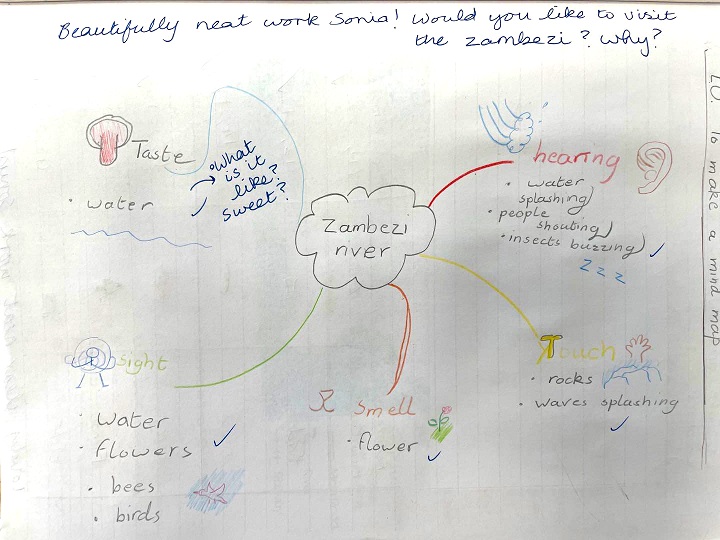 Beautifully neat work Sonia! Would you like to visit
the zambezi? Why?
LO: To make a mind map
Taste
• water
• What
is it
like?
Sweet?
hearing
• water
splashing
• people
shouting
• insects buzzing
z z z
Zambezi
river
sight
• water
• flowers
• bees
• birds
smell
• flower
Touch
• rocks
• waves splashing